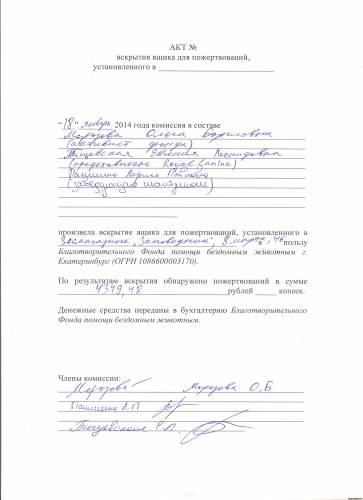 АКТ №
вскрытия ящика для пожертвований,
установленного в
"18" января 2014 года комиссия в составе
Морозова Ольга Борисовна
(активист фонда)
Евгения Леонидовна
(представитель Royal Canine)
Мария Павловна
(заведующая магазином)
произвела вскрытие ящика для пожертвований, установленного в
Зоомагазине "Заповедник", 8 марта в пользу
Благотворительного Фонда помощи бездомным животным г.
Екатеринбург (ОГРН 1086600003170).
По результатам вскрытия обнаружено пожертвований в сумме
4349,48 рублей копеек.
Денежные средства переданы в бухгалтерию Благотворительного
Фонда помощи бездомным животным.
Члены комиссии:
Морозова О.Б